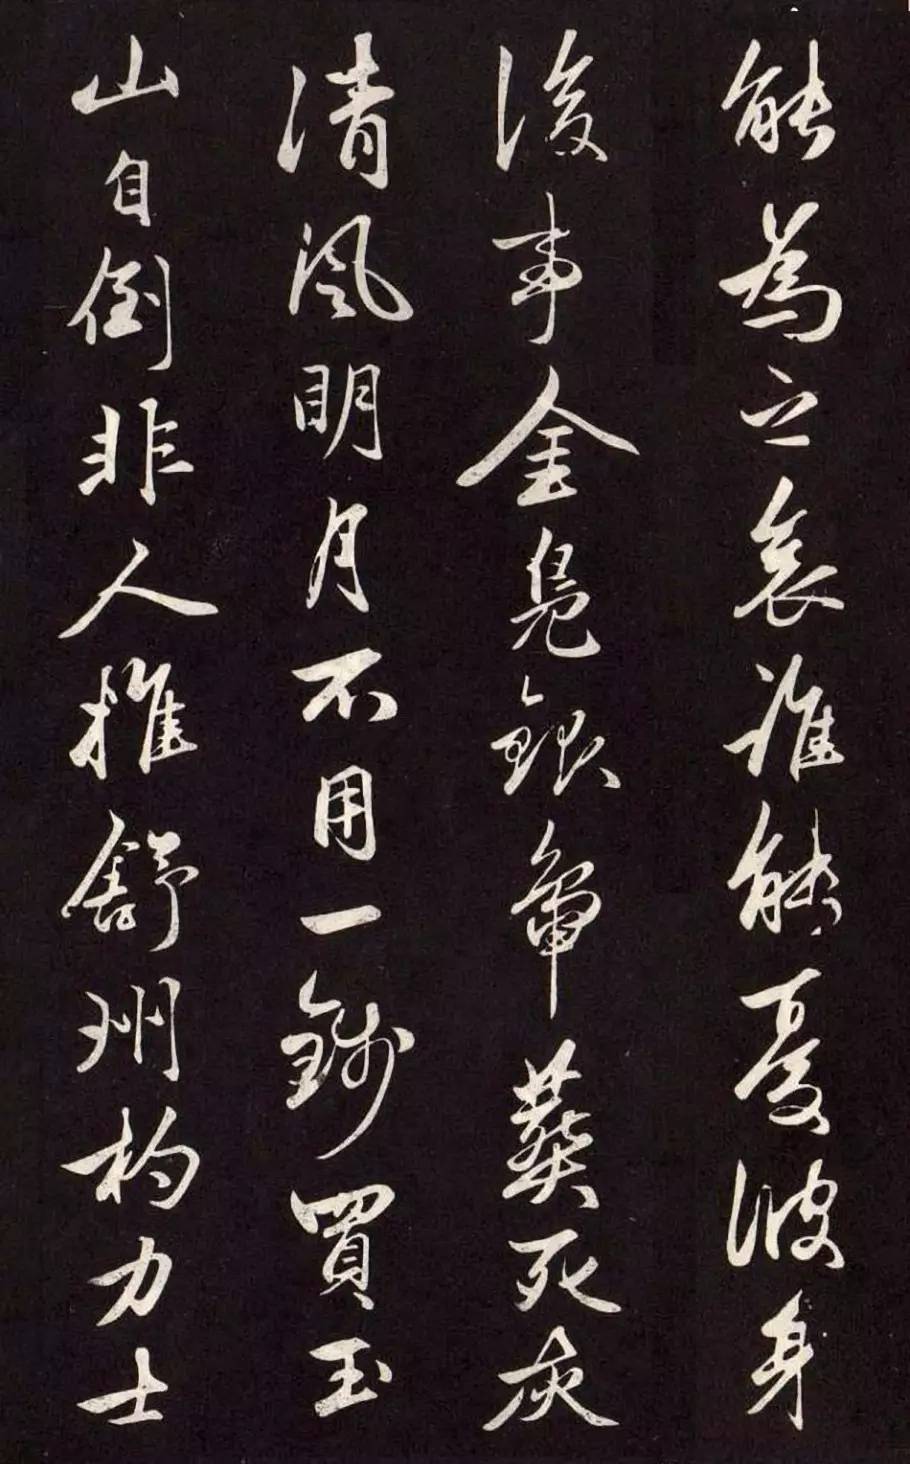 能為之哀誰能憂彼身
後事金鳧銀鴨葬死灰
清風明月不用一錢買玉
山自倒非人推舒州杓力士